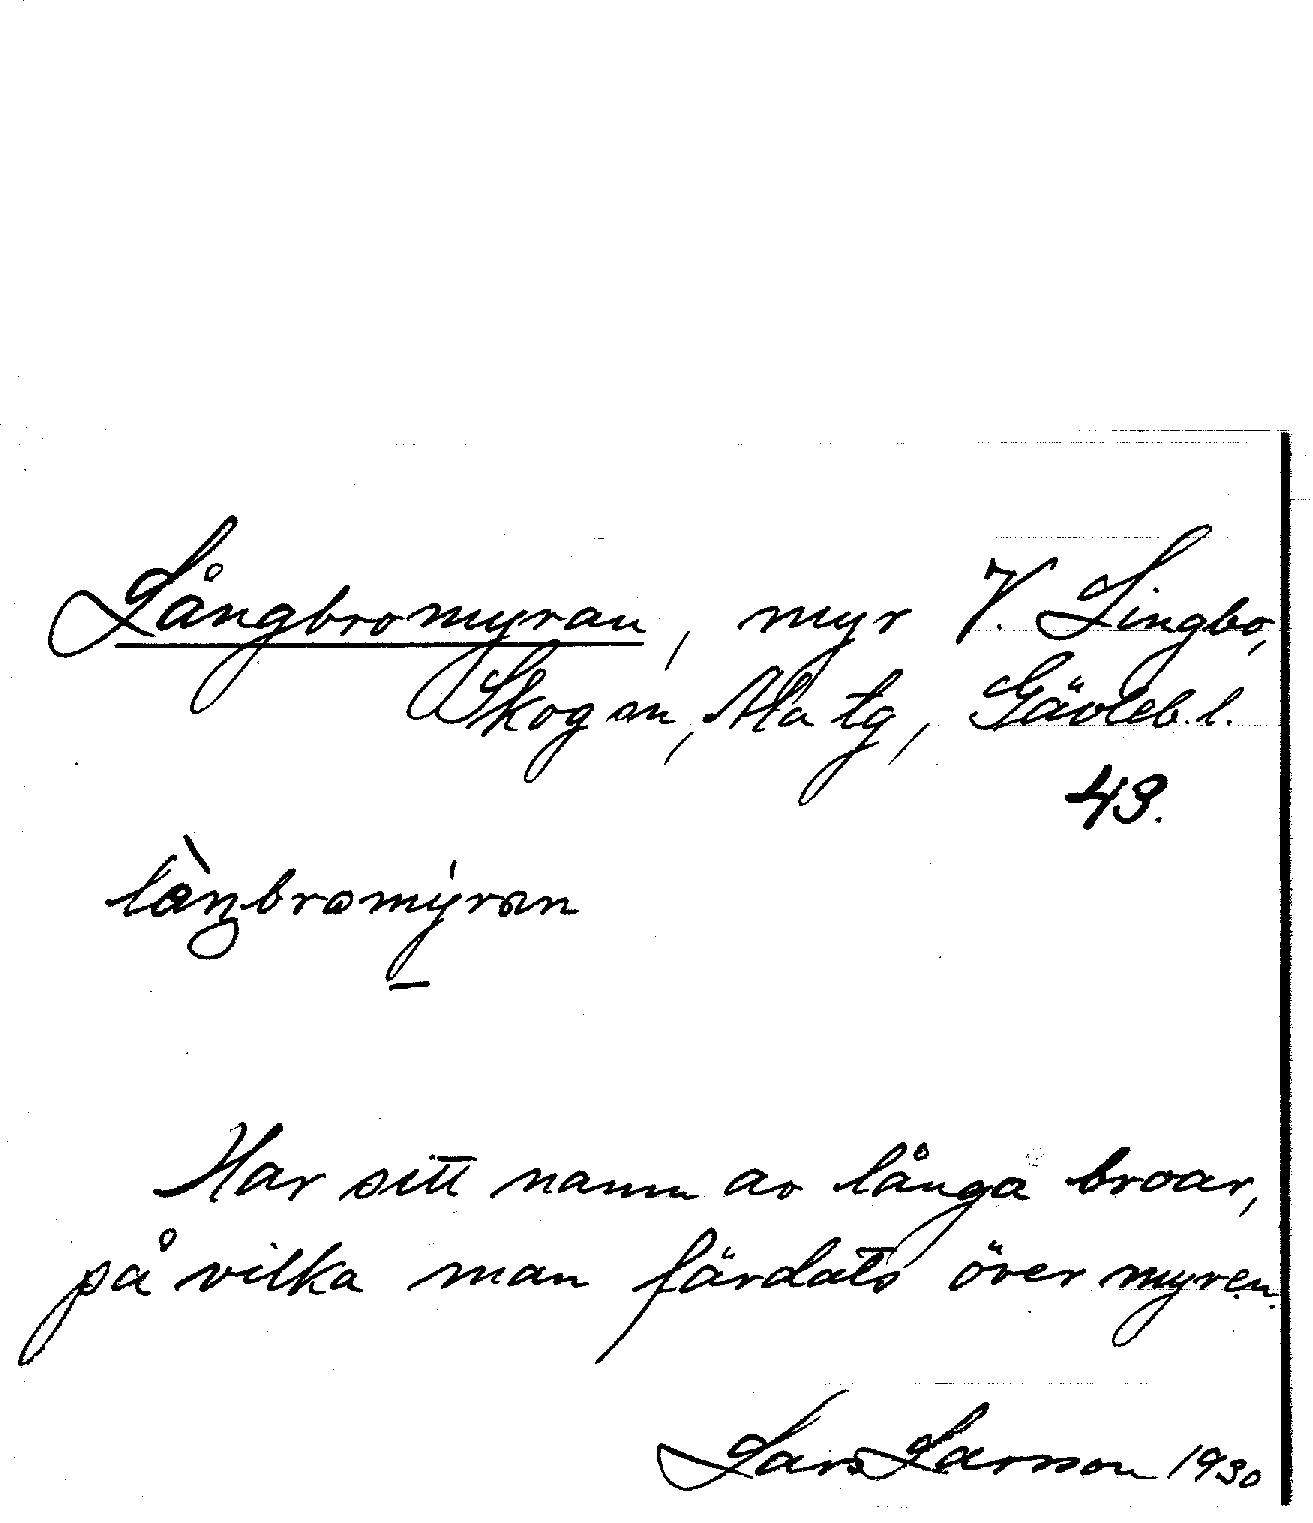 Långbromyran, myr V. Lingbo,
Skog sn, Ala tg, Gävleb. l.
43.
Har sitt namn av långa broar,
på vilka man färdats över myren.
Lars Larsson 1930